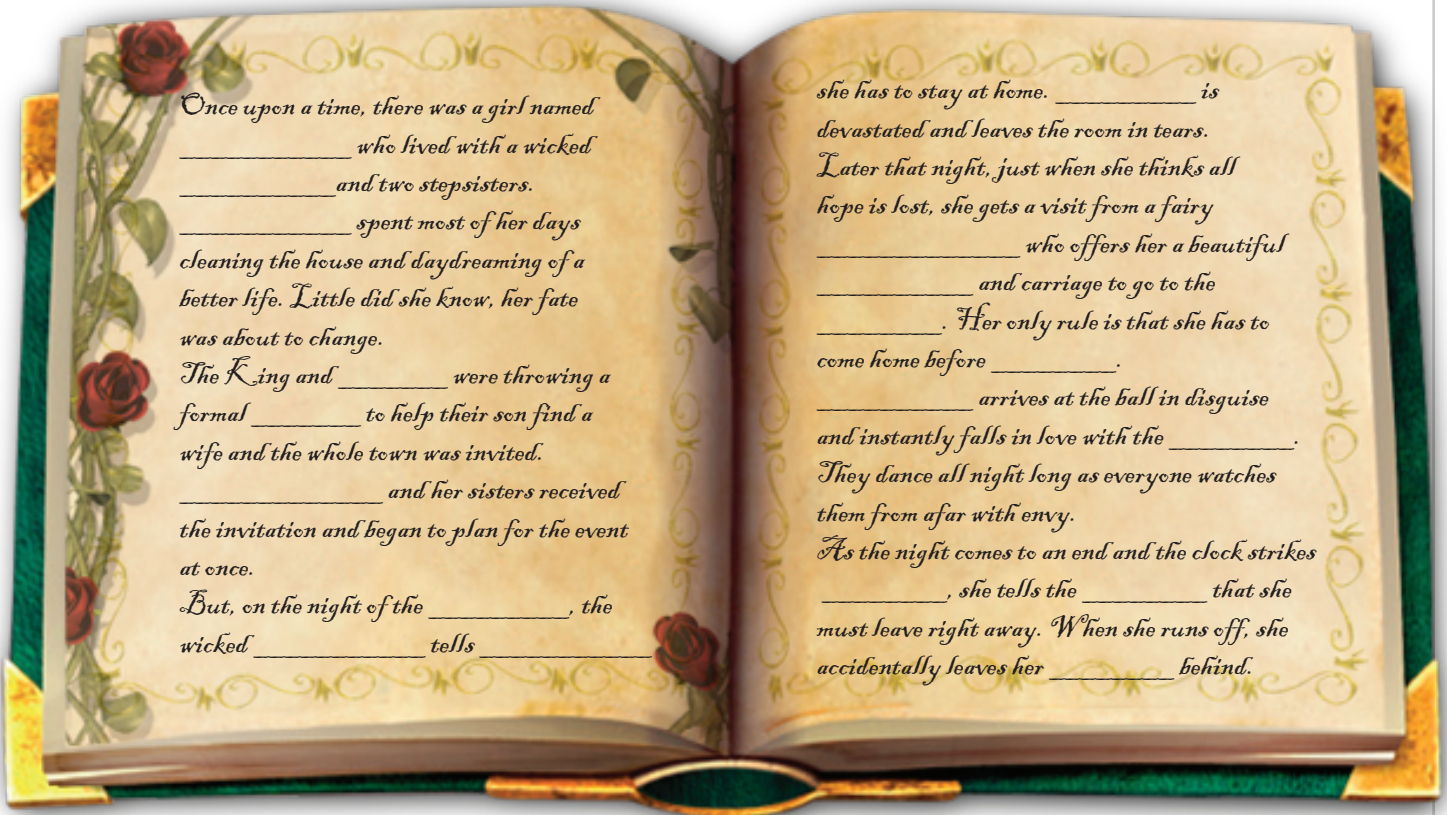 Once upon a time, there was a girl named
_______________ who lived with a wicked
______________and two stepsisters.
_______________ spent most of her days
cleaning the house and daydreaming of a
better life. Little did she know, her fate
was about to change.
The King and __________ were throwing a
formal __________ to help their son find a
wife and the whole town was invited.
__________________ and her sisters received
the invitation and began to plan for the event
at once.
But, on the night of the ____________, the
wicked _______________ tells _______________
she has to stay at home. ____________ is
devastated and leaves the room in tears.
Later that night, just when she thinks all
hope is lost, she gets a visit from a fairy
__________________ who offers her a beautiful
______________ and carriage to go to the
___________. Her only rule is that she has to
come home before ___________.
______________ arrives at the ball in disguise
and instantly falls in love with the ___________.
They dance all night long as everyone watches
them from afar with envy.
As the night comes to an end and the clock strikes
___________, she tells the ___________ that she
must leave right away. When she runs off, she
accidentally leaves her ___________ behind.